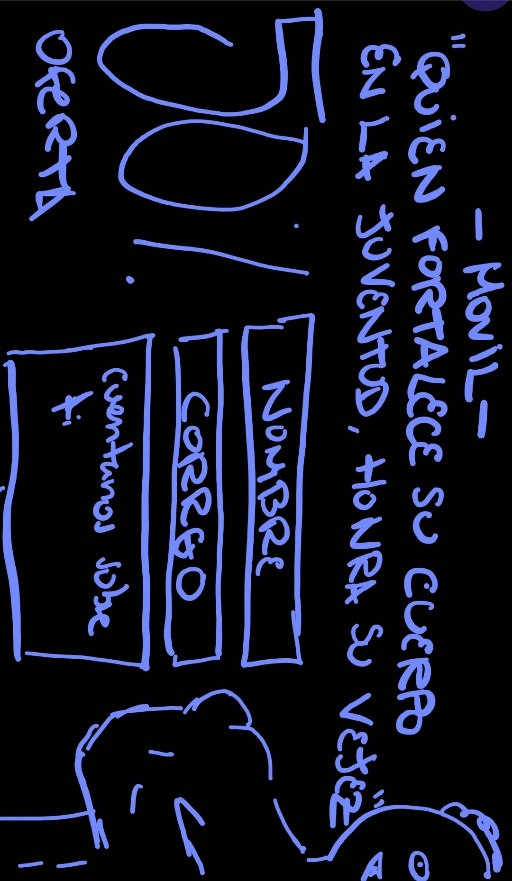 - MOVIL -
"QUIEN FORTALECE SU CUERPO
EN LA JUVENTUD, HONRA SU VEJEZ"
50%
OFERTA
NOMBRE
CORREO
Cuentanos sobre
ti